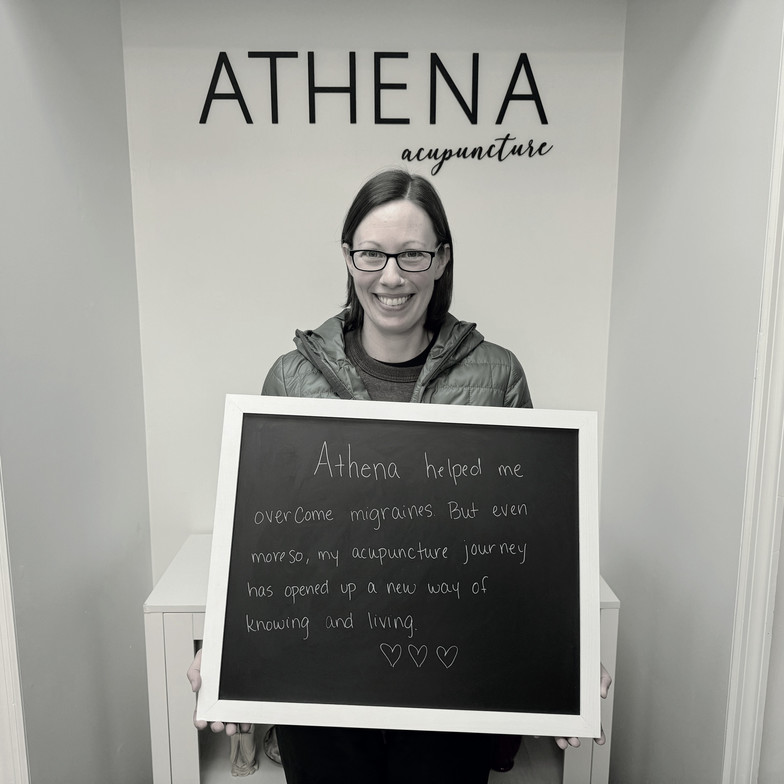 ATHENA
acupuncture
Athena helped me
overcome migraines. But even
moreso, my acupuncture journey
has opened up a new way of
knowing and living.
♡♡♡